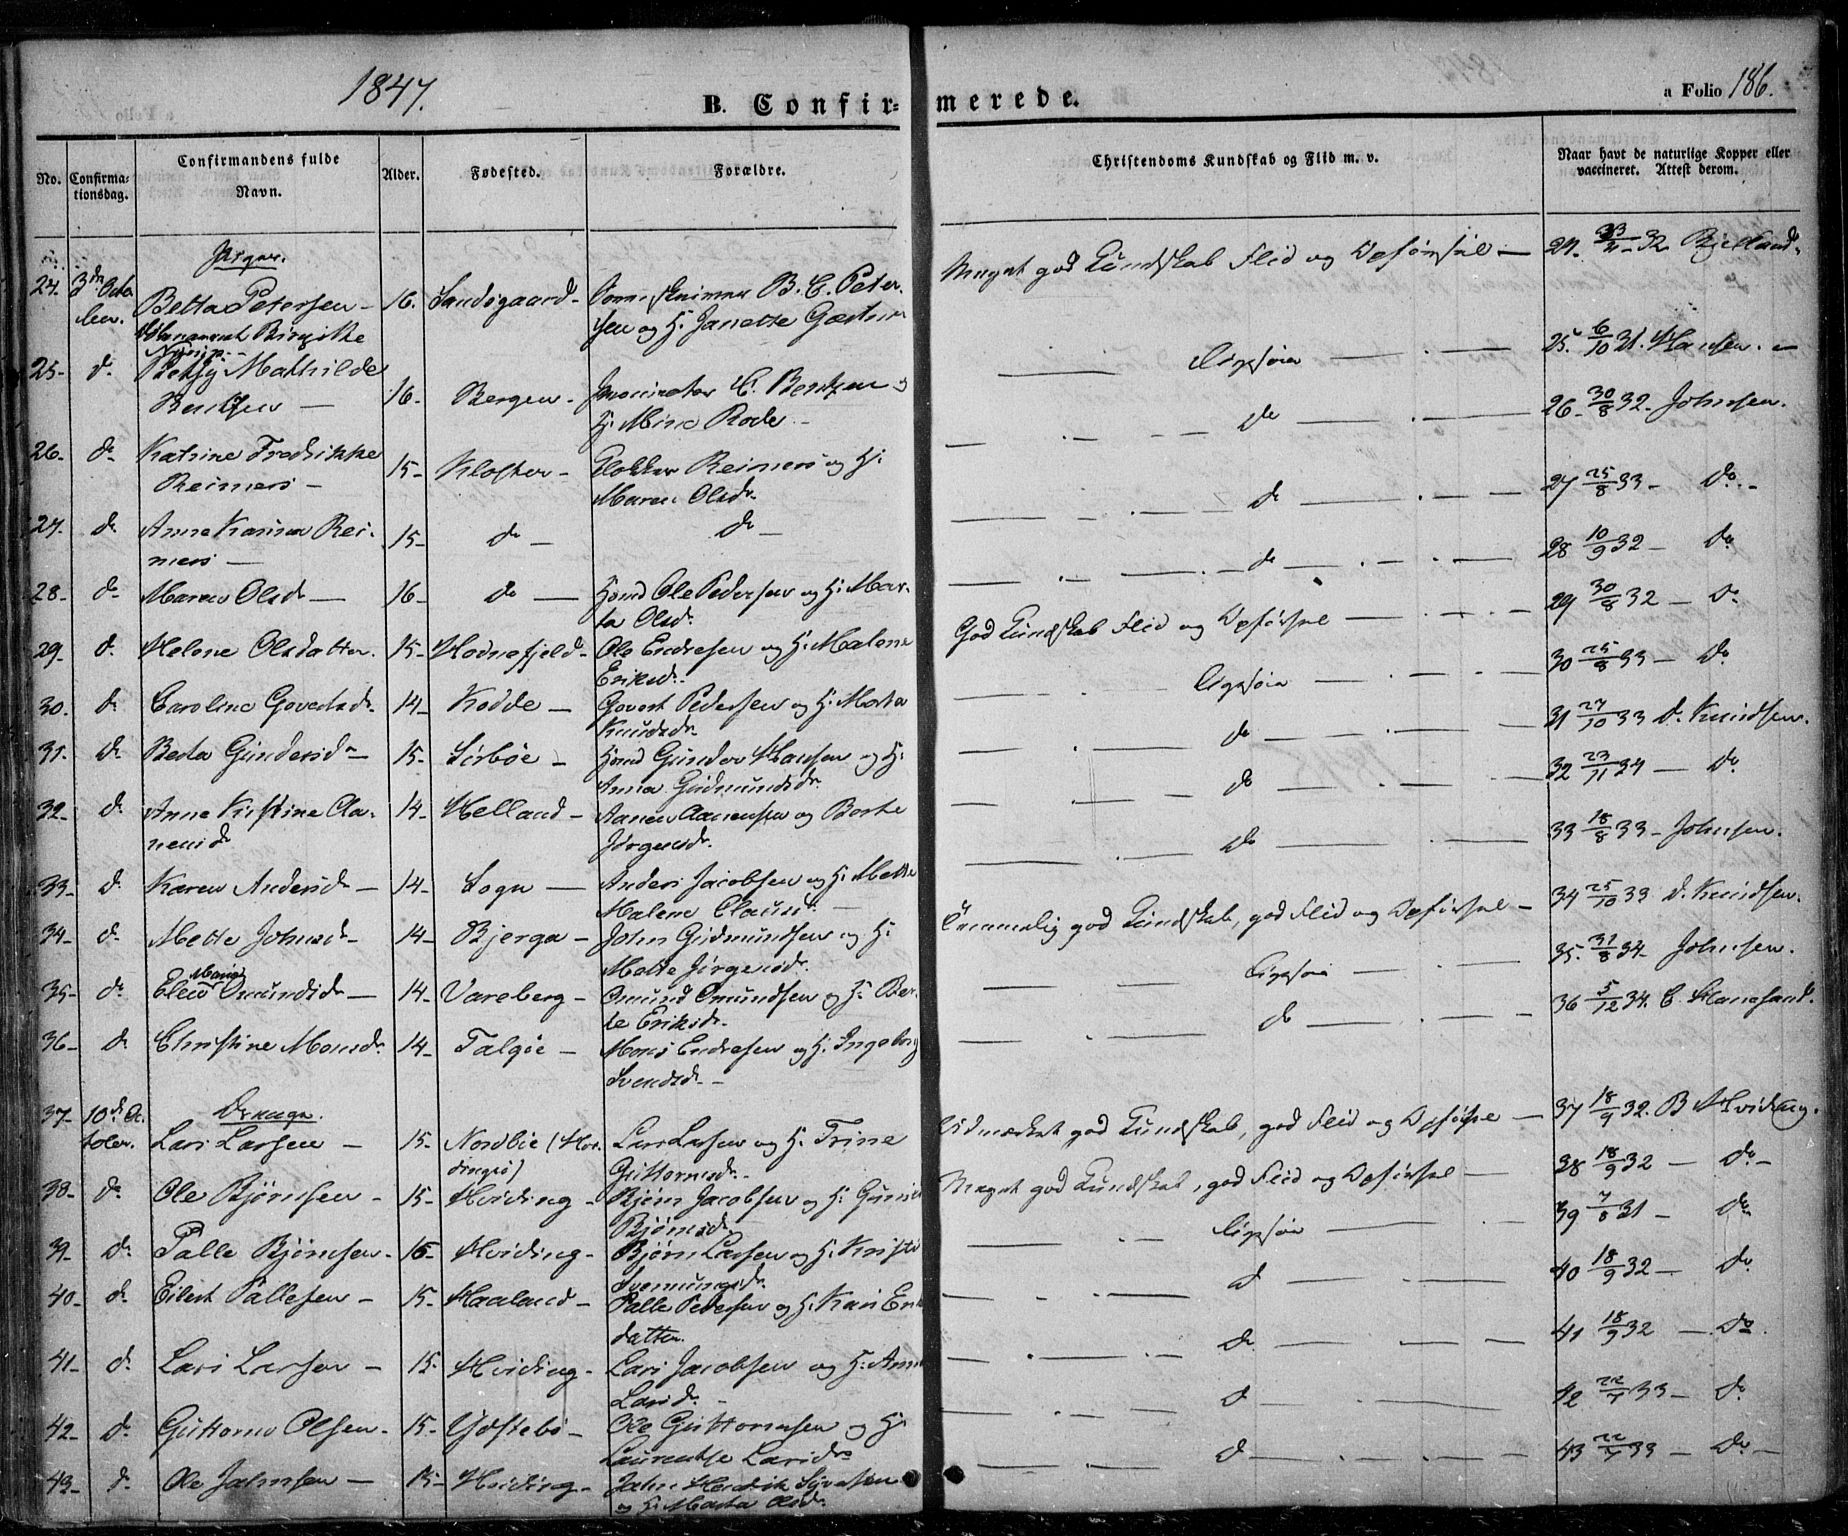 1847.
B. Confir-
merede.
a Folio 186.
No.
Confirma-
tionsdag.
Confirmandens fulde
Navn.
Alder.
Fødested.
Forældre.
Christendoms Kundskab og Flid m. v.
Naar havt de naturlige Kopper eller
vaccineret. Attest derom.
Piger.
24. 3die Octo
ber. Betta Petersen - 16. Sandsgaard - B. C. Peter-
sen og H. Janette
Birgitte
25. d. Betsy Mathilde
Bentzen - 16. Bergen - C. Bentzen og
H. Mine Rode -
26. d. Katrine Fredrikke
Reimers - 15 - Kloster - Klokker Reimers og H.
Maren Olsdr.
27. d. Anne Karine Rei-
mers - 15 - do - do -
28 - d. Maren Olsdr - 16 - do - Hmd Ole Pedersen og H. Mar-
ta Olsdr.
29. d. Helene Olsdatter. 15 - Hodnefjeld - Ole Endresen og H. Malene
Eriksdr.
30. d. Caroline Govertsdr. 14 - Hodde - Govert Pedersen og H. Marta
Knudsdr.
31. d. Berta Gundersdr - 15 - Sørbøe - Hmd Gunder Hansen og H.
Anna Gudmundsdr.
32. d. Anne Kirstine Aa-
nensdr - 14 - Helland - Aanen Aanensen og Berte
Jørgensdr.
33. d. Karen Andersdr - 14 - Sogn - Anders Jacobsen og H. Mette
Malene Clausdr. -
34. d. Mette Johnsdr - 14 - Bjerga - John Gudmundsen og H.
Malte Jørgensdr.
35. d. Elen Marie Omundsdr - 14 - Vareberg - Omund Omundsen og H. Ber-
te Eriksdr. -
36 - d. Christine Monsdr. 14 - Talgøe - Mons Endresen og H. Ingeborg
Svendsdr. -
Drenge.
37. 10de Oc-
tober. Lars Larsen - 15. Nordbøe (Hor-
dingsø) Lars Larsen og H. Trine
Guttormsdr. -
38. d. Ole Bjørnsen - 15 - Hviding - Bjørn Jacobsen og H. Gunild
Bjørnsdr
39. d. Palle Bjørnsen - 16 - Hviding - Bjørn Larsen og H. Kristi
Svenungsdr.
40. d. Eilert Pallesen - 15 - Haaland - Palle Pedersen og H. Kari Eriks
datter.
41 - d. Lars Larsen - 15. Hviding - Lars Jacobsen og H. Anne
Larsdr. -
42. d. Guttorm Olsen - 15 - Ydstebø - Ole Guttormsen og H.
Laurentse Larsdr
43. d. Ole Jahnsen - 15 - Hviding - Jahn Henrik Syvertsen
og H. Marta Olsdr.
Meget god Kundskab Flid og Opførsel -
Ligesaa
do
do
do
God Kundskab Flid og Opførsel
Ligesaa
do
do
do
Temmelig god Kundskab, god Flid og Opførsel -
Ligesaa
do
Udmærket god Kundskab, god Flid og Opførsel -
Meget god Kundskab, god Flid og Opførsel -
Ligesaa
d
do
d
d
24. 23/2 - 32 Bjelland.
25. 6/10 31. Hansen. -
26 - 30/8 32 - Johnsen.
27 25/8 33 - Do. -
28 10/9 32 - Do
29 30/8 32 - Do
30 25/8 33 - Do
31 27/10 33 D. Knudsen.
32 23/11 34 - Do
33 18/8 33 - Johnsen.
34 25/10 33 D. Knudsen.
35. 31/8 34 - Johnsen.
36 5/12 34. C. Hanesand.
37 18/9 32. B Hviding.
38 18/9 32 - Do -
39 7/8 31 - Do
40 18/9 32 - Do
41 18/9 32 - Do.
42 22/7 33 - Do
43 22/7 33 - Do -